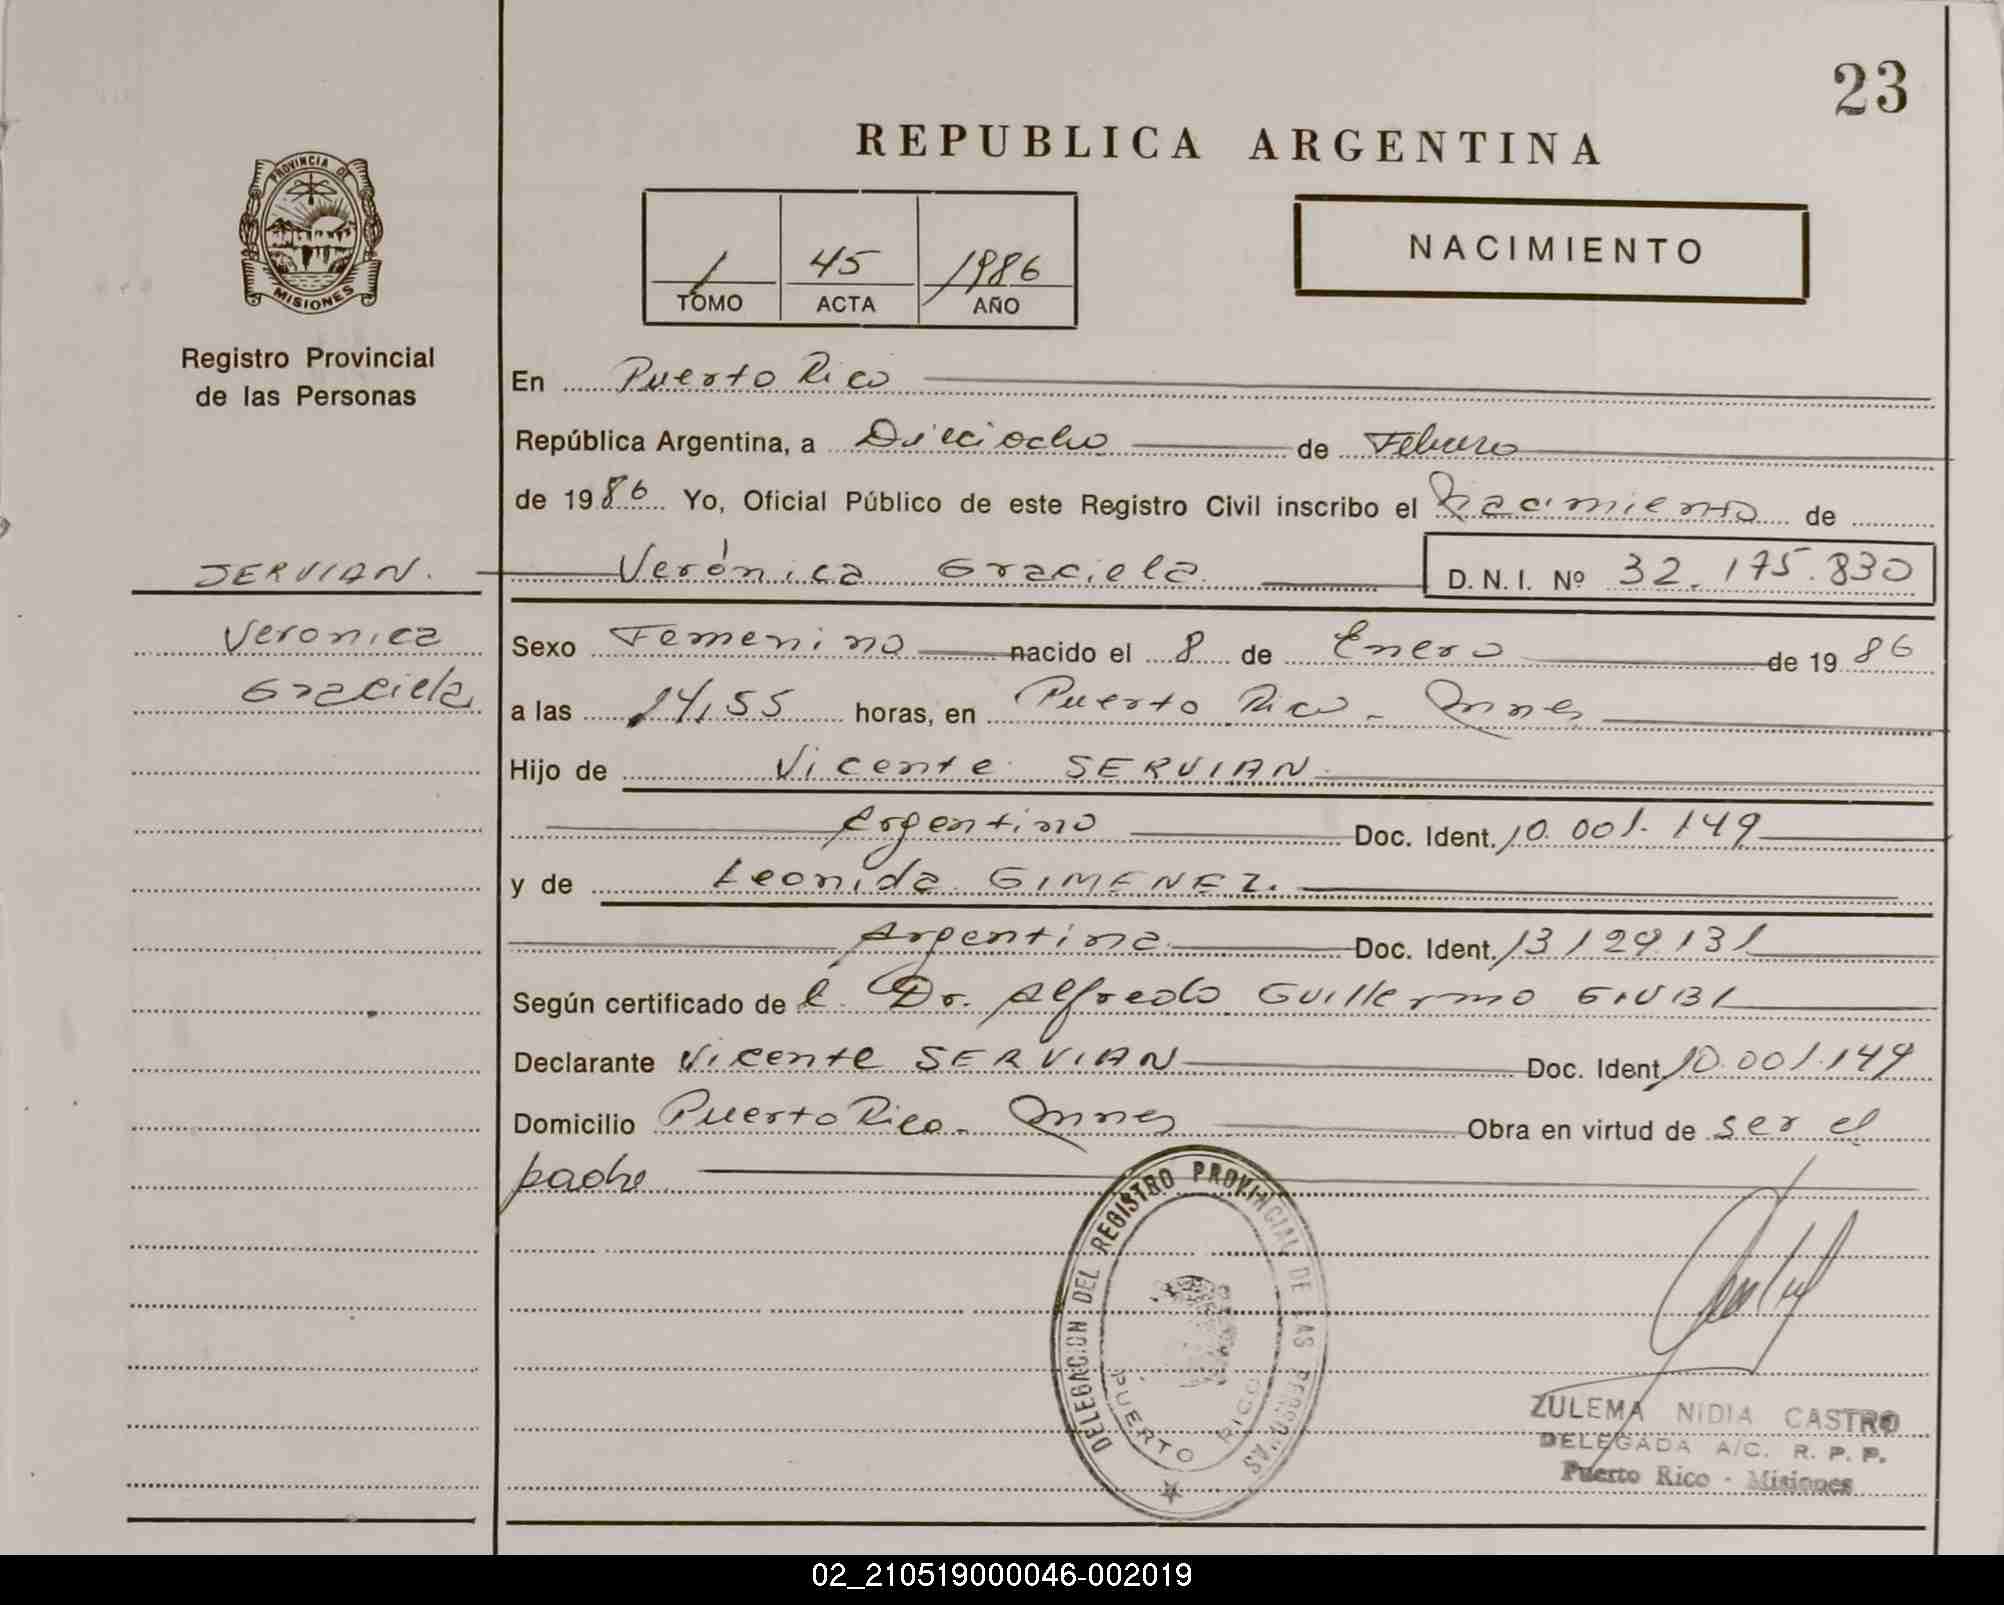 23
REPUBLICA ARGENTINA
PROVINCIA DE
MISIONES
Registro Provincial
de las Personas
1 45 1986
TOMO ACTA AÑO
NACIMIENTO
En Puerto Rico
República Argentina, a Dieciocho de Febrero
de 1986 Yo, Oficial Público de este Registro Civil inscribo el Nacimiento de
SERVIAN. Verónica Graciela D.N.I. Nº 32.175.830
Veronica
Graciela
Sexo Femenino nacido el 8 de Enero de 1986
a las 14,55 horas, en Puerto Rico - Mnes
Hijo de Vicente SERVIAN
Argentino Doc. Ident. 10.001.149
y de Leonida GIMENEZ.
Argentina Doc. Ident. 13129131
Según certificado de l Dr. Alfredo Guillermo GIUBI
Declarante Vicente SERVIAN Doc. Ident. 10.001.149
Domicilio Puerto Rico - Mnes Obra en virtud de ser el
padre
DELEGACION DEL REGISTRO PROVINCIAL DE LAS PERSONAS
PUERTO RICO
ZULEMA NIDIA CASTRO
DELEGADA A/C. R. P. P.
Puerto Rico - Misiones
02_210519000046-002019